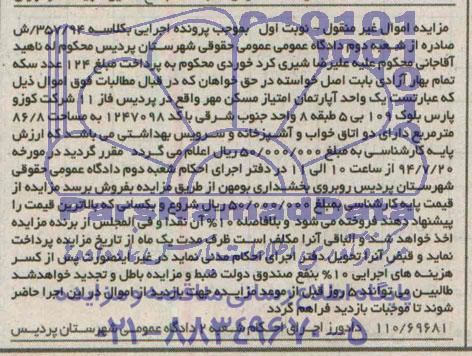 مزایده اموال غیر منقول - نوبت اول بموجب پرونده اجرایی بکلاسه ۳۵۷/۹۴/ش
صادره از شعبه دوم دادگاه عمومی حقوقی شهرستان پردیس محکوم له ناهید
آقاجانی محکوم علیه علیرضا شیری کرد خوردی محکوم به پرداخت مبلغ ۱۲۴ عدد سکه
تمام بهار آزادی بابت اصل خواسته در حق خواهان که در قبال مطالبات فوق اموال ذیل
که عبارتست یک واحد آپارتمان امتیاز مسکن مهر واقع در پردیس فاز ۱۱ شرکت کوزو
پارس بلوک ۱۰۹ بی ۵ طبقه ۸ واحد جنوب شرقی با کد ۱۲۴۷۰۹۸ به مساحت ۸۶/۸
مترمربع دارای دو اتاق خواب و آشپزخانه و سرویس بهداشتی می باشد که ارزش
پایه کارشناسی به مبلغ ۵۰/۰۰۰/۰۰۰ ریال اعلام می گردد مقرر گردید در مورخه
۹۴/۷/۲۰ از ساعت ۱۰ الی ۱۱ در دفتر اجرای احکام شعبه دوم دادگاه عمومی حقوقی
شهرستان پردیس روبروی بخشداری بومهن از طریق مزایده بفروش برسد مزایده از
قیمت پایه کارشناسی بمبلغ ۵۰/۰۰۰/۰۰۰ ریال شروع و بکسانی که بالاترین قیمت را
پیشنهاد دهند فروخته می شود و بلافاصله ۱۰% آن نقدا و فی المجلس از برنده مزایده
اخذ خواهد شد و الباقی آنرا مکلف است ظرف مدت یک ماه از تاریخ مزایده پرداخت
نماید و قبض آنرا تحویل دفتر اجرای احکام مدنی نماید در غیر اینصورت پیش از کسر
هزینه های اجرایی ۱۰% بنفع صندوق دولت ضبط و مزایده باطل و تجدید خواهد شد
طالبین می توانند ۵ روز قبل از موعد مزایده جهت بازدید از اموال در این اجرا حاضر
شوند تا موجبات بازدید فراهم گردد
۱۱۰/۶۹۶۸۱ دادورز اجرای احکام شعبه ۲ دادگاه عمومی شهرستان پردیس
ParsNamadData
پایگاه اطلاع رسانی مناقصه و مزایده
۰۲۱-۸۸۳۴۹۶۷۰-۵